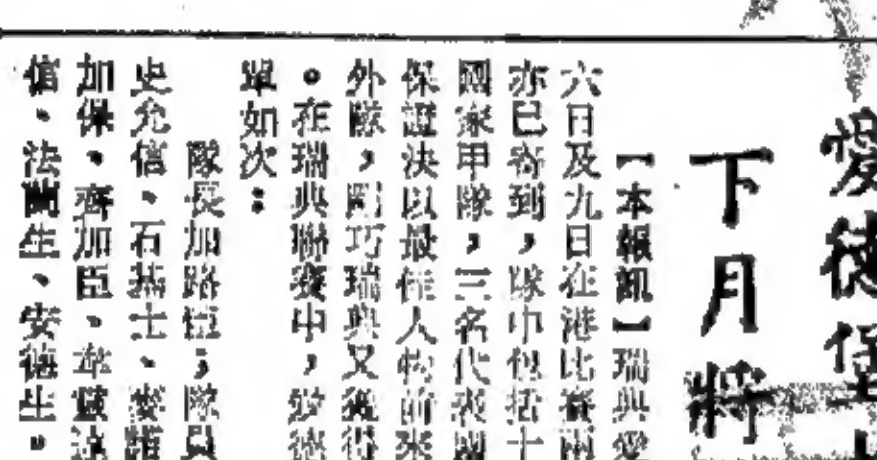 愛徒堡
下月將
【本報訊】瑞典愛
六日及九日在港比賽兩
亦已寄到，隊中包括十
國家甲隊，三名代表國
保證決以最佳人物前來
外隊，剛巧瑞典又獲得
。在瑞典聯賽中，愛德
單如次：
隊長加路臣；隊員
史允信、石基士、麥諾
加保、齊加臣、
信、法蘭生、安德生。